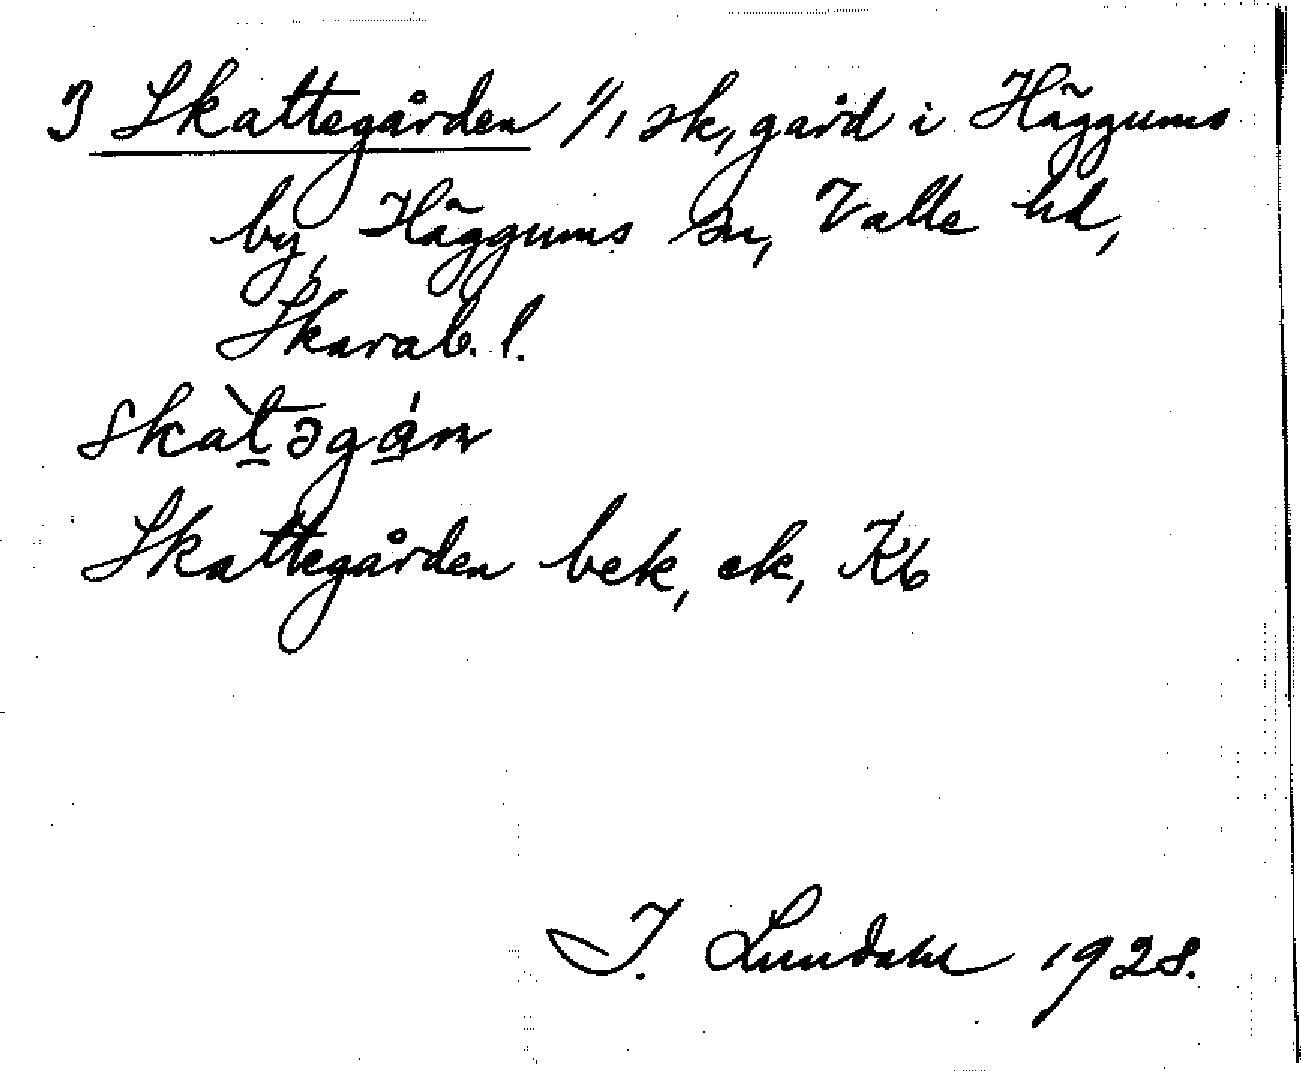 3 Skattegården 1/1 sk, gård i Häggums
by, Häggums sn, Valle hd,
Skarab. l.
skàt̠əgɑ́n
Skattegården bek, ek, Kb
I. Lundahl 1928.